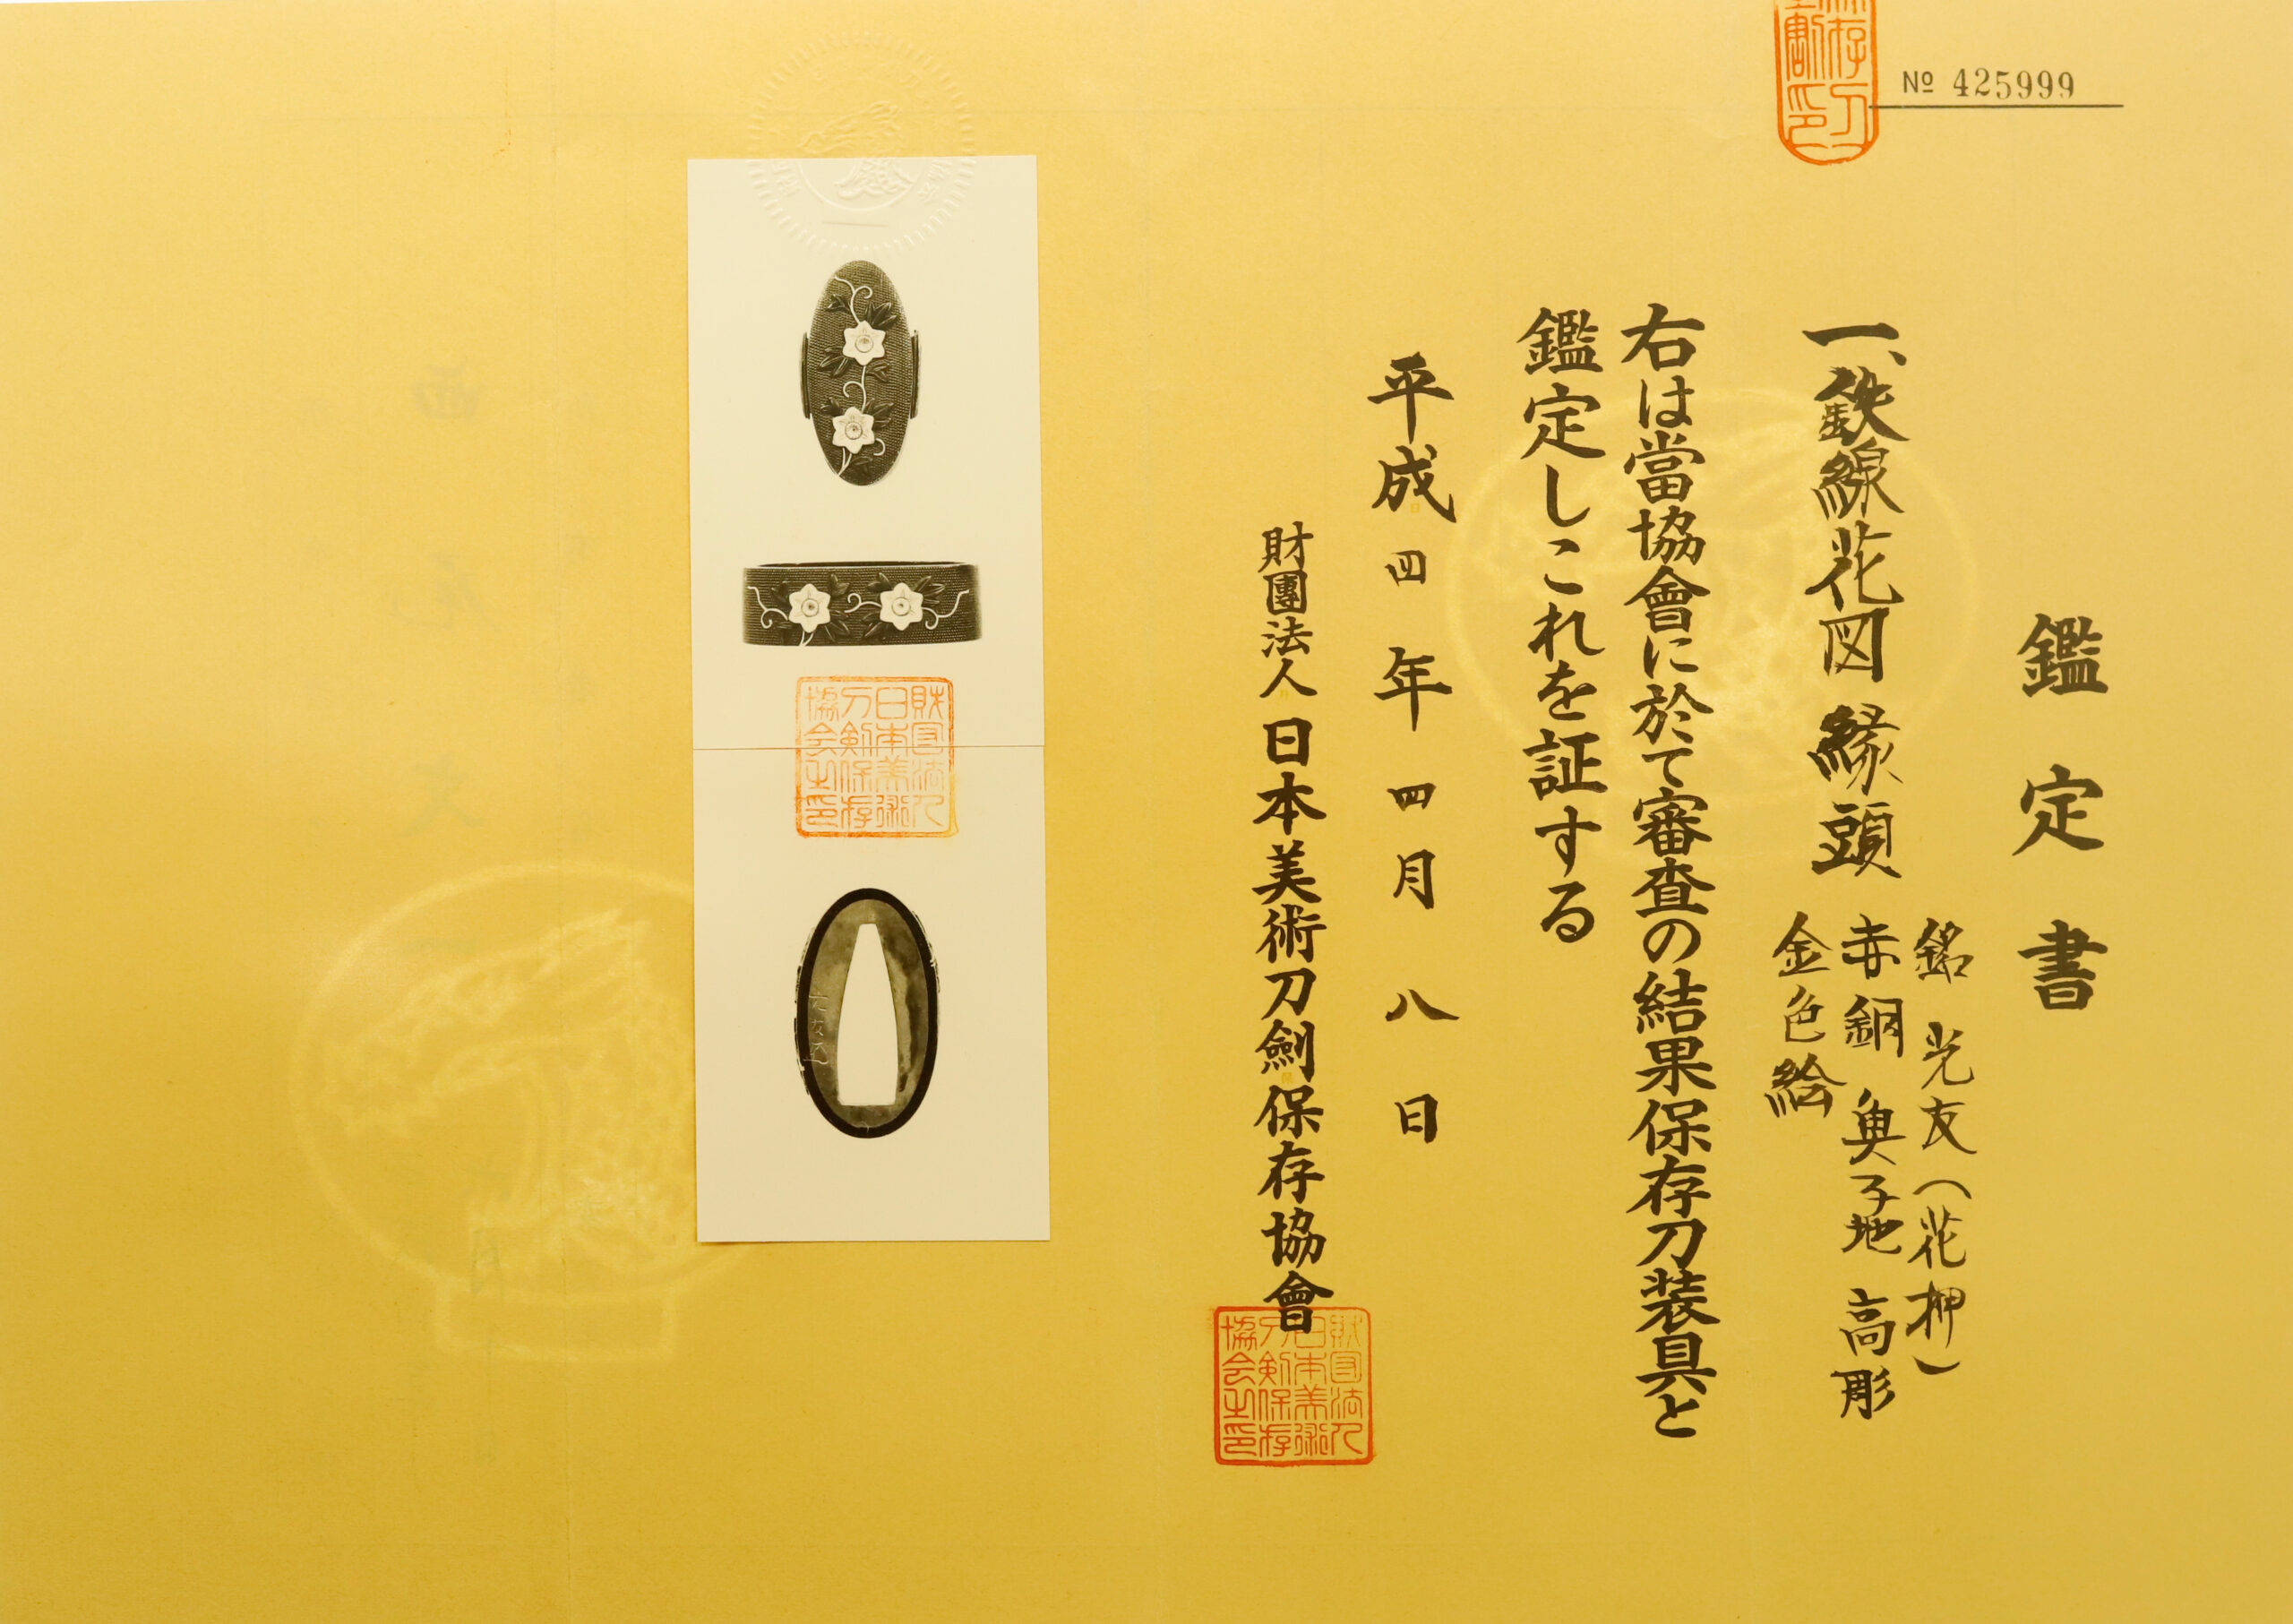 № 425999
鑑定書
一、鉄線花図縁頭
銘 光友（花押）
赤銅魚子地高彫
金色絵
右は當協會に於て審査の結果保存刀装具と
鑑定しこれを証する
平成四年四月八日
財團法人日本美術刀劍保存協會
財団法人
日本美術
刀剣保存
協会之印
財団法人
日本美術
刀剣保存
協会之印